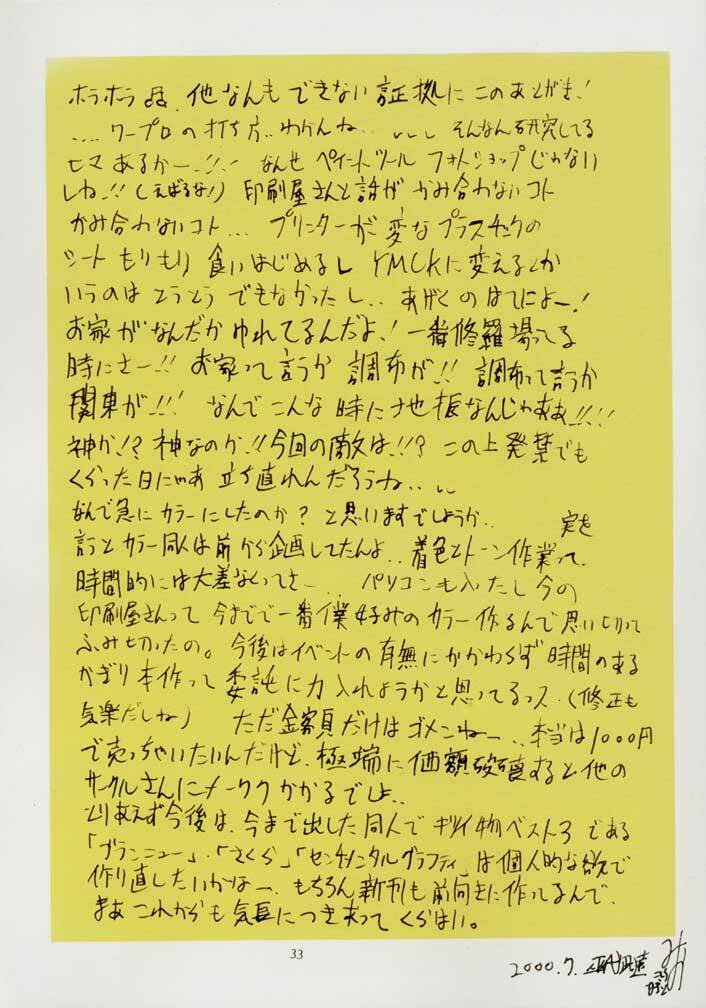 ホラホラ 他なんもできない証拠にこのあとがき!
‥‥ワープロの打ち方‥わかんね‥、、、し そんなん研究してる
ヒマあるかー‥!!‥! なんせペイントツール フォトショップじゃない
しね‥!!(えばるな!) 印刷屋さんと話が かみ合わないコト
かみ合わないコト‥‥ プリンターが変なプラスチックの
シート もりもり 食いはじめるし YMCKに変えるとか
いうのは とうとう できなかったし‥ あげくのはてによー!
お家がなんだかゆれてるんだよ!一番修羅場ってる
時にさー‥!! お家って言うか 調布が‥!! 調布って言うか
関東が‥!!! なんでこんな時に地振なんじゃああ!!‥!!
神か‥!? 神なのか‥!!今回の敵は‥!!? この上発禁でも
くらった日にゃあ 立ち直れんだろうね‥、、
なんで急にカラーにしたのか? と思いますでしょうか‥ 実を
言うとカラー同人は前から企画してたんよ‥着色とトーン作業って、
時間的には大差なくってさー‥‥ パソコンも入ったし今の
印刷屋さんって 今までで一番僕好みのカラー作るんで思い切って
ふみ切ったの。今後はイベントの有無にかかわらず時間のある
かぎり本作って 委託に力入れようかと思ってるっス。(修正も
気楽だしね) ただ金額だけはゴメンねー‥、本当は1000円
で売っちゃいたいんだけど、極端に価額破壊すると他の
サークルさんにメーワクかかるでしょ‥
とりあえず今後は、今まで出した同人でキツイ物ベスト3である
「ブランニュー」・「さくら」「センチメンタルグラフティ」は個人的な欲で
作り直したいかなー、もちろん新刊も前向きに作ってるんで、
まあこれからも気長につき合ってくらはい。
33
2000.7.